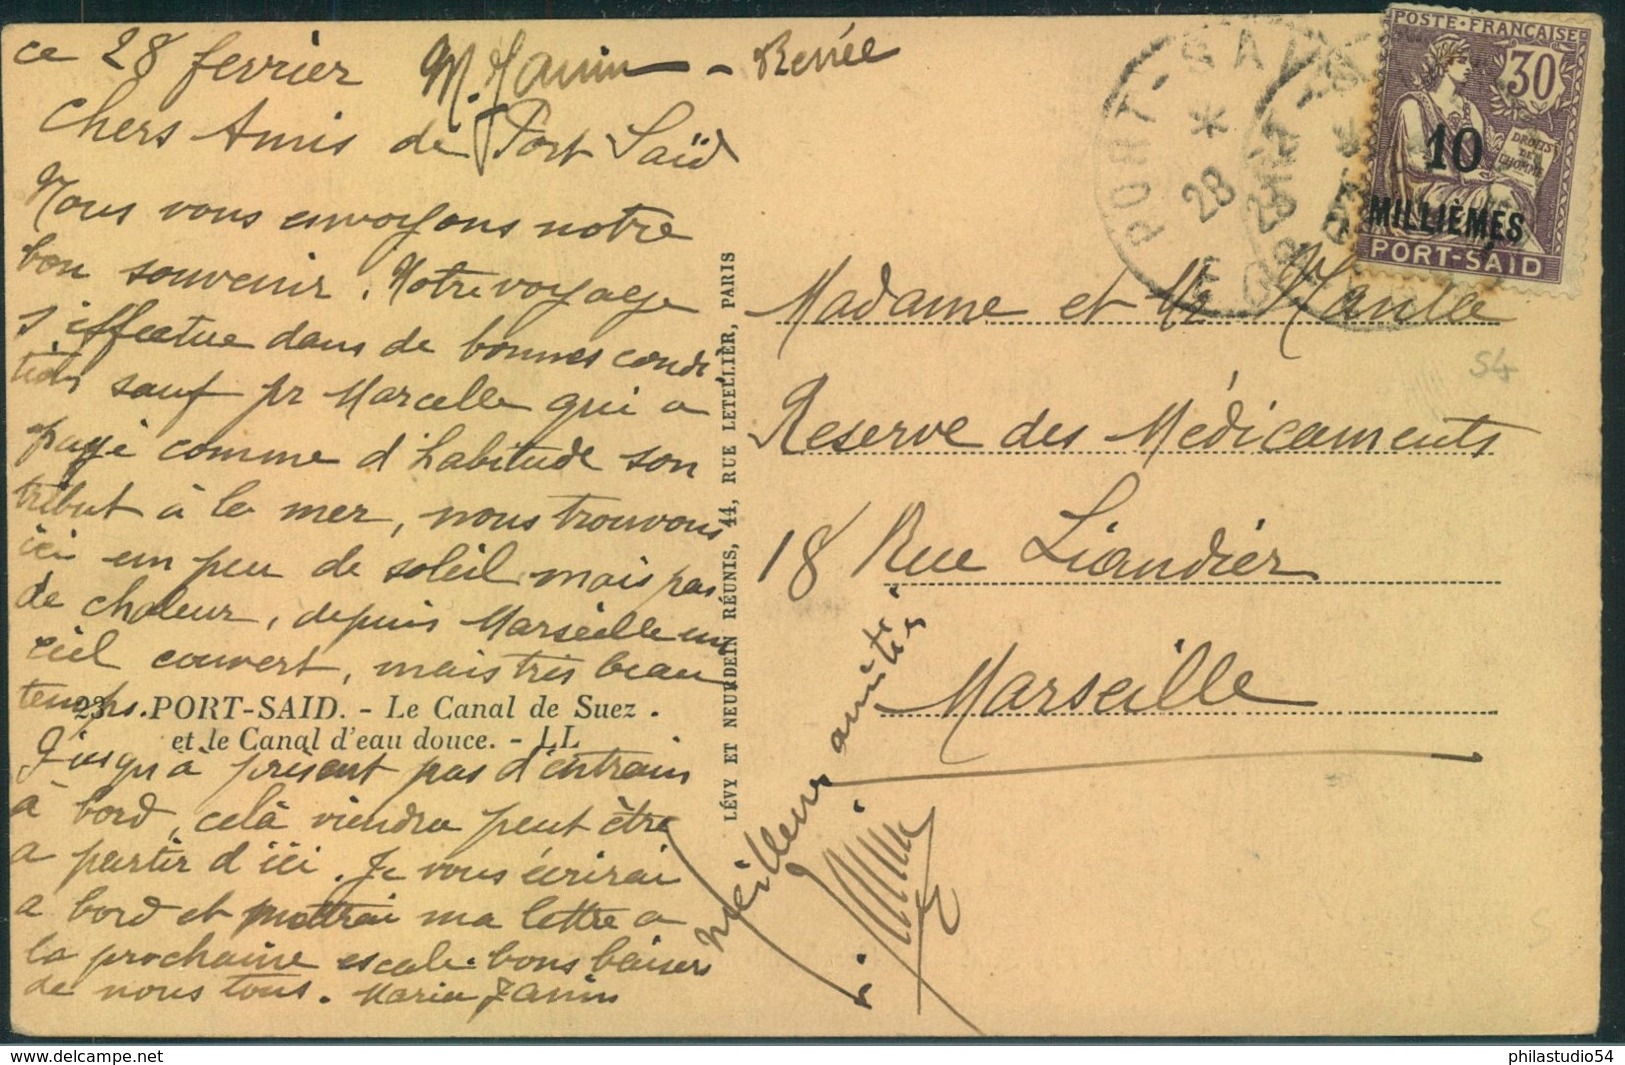 ce 28 fevrier M. Janin - Renée
Chers Amis de Port Saïd
Nous vous envoyons notre
bon souvenir. Notre voyage
s'effectue dans de bonnes condi-
tions sauf pr Marcelle qui a
payé comme d'habitude son
tribut à la mer, nous trouvons
ici un peu de soleil mais pas
de chaleur, depuis Marseille un
ciel couvert, mais très beau
temps.
23. PORT-SAID. - Le Canal de Suez.
et le Canal d'eau douce. - LL
Jusqu'à présent pas d'entrain
à bord, celà viendra peut être
a partir d'ici. Je vous écrirai
a bord et mettrai ma lettre a
la prochaine escale. bons baisers
de nous tous. Maria Janin
Meilleures amitiés
LÉVY ET NEURDEIN RÉUNIS, 44, RUE LETELLIER, PARIS
PORT-SAÏD
28
POSTE·FRANÇAISE
30
DROITS
DE
L'HOMME
10
MILLIÈMES
PORT-SAÏD
Madame et Mr
54
Reserve des Médicaments
18 Rue Liandier
Marseille
delcampe.net
philastudio54